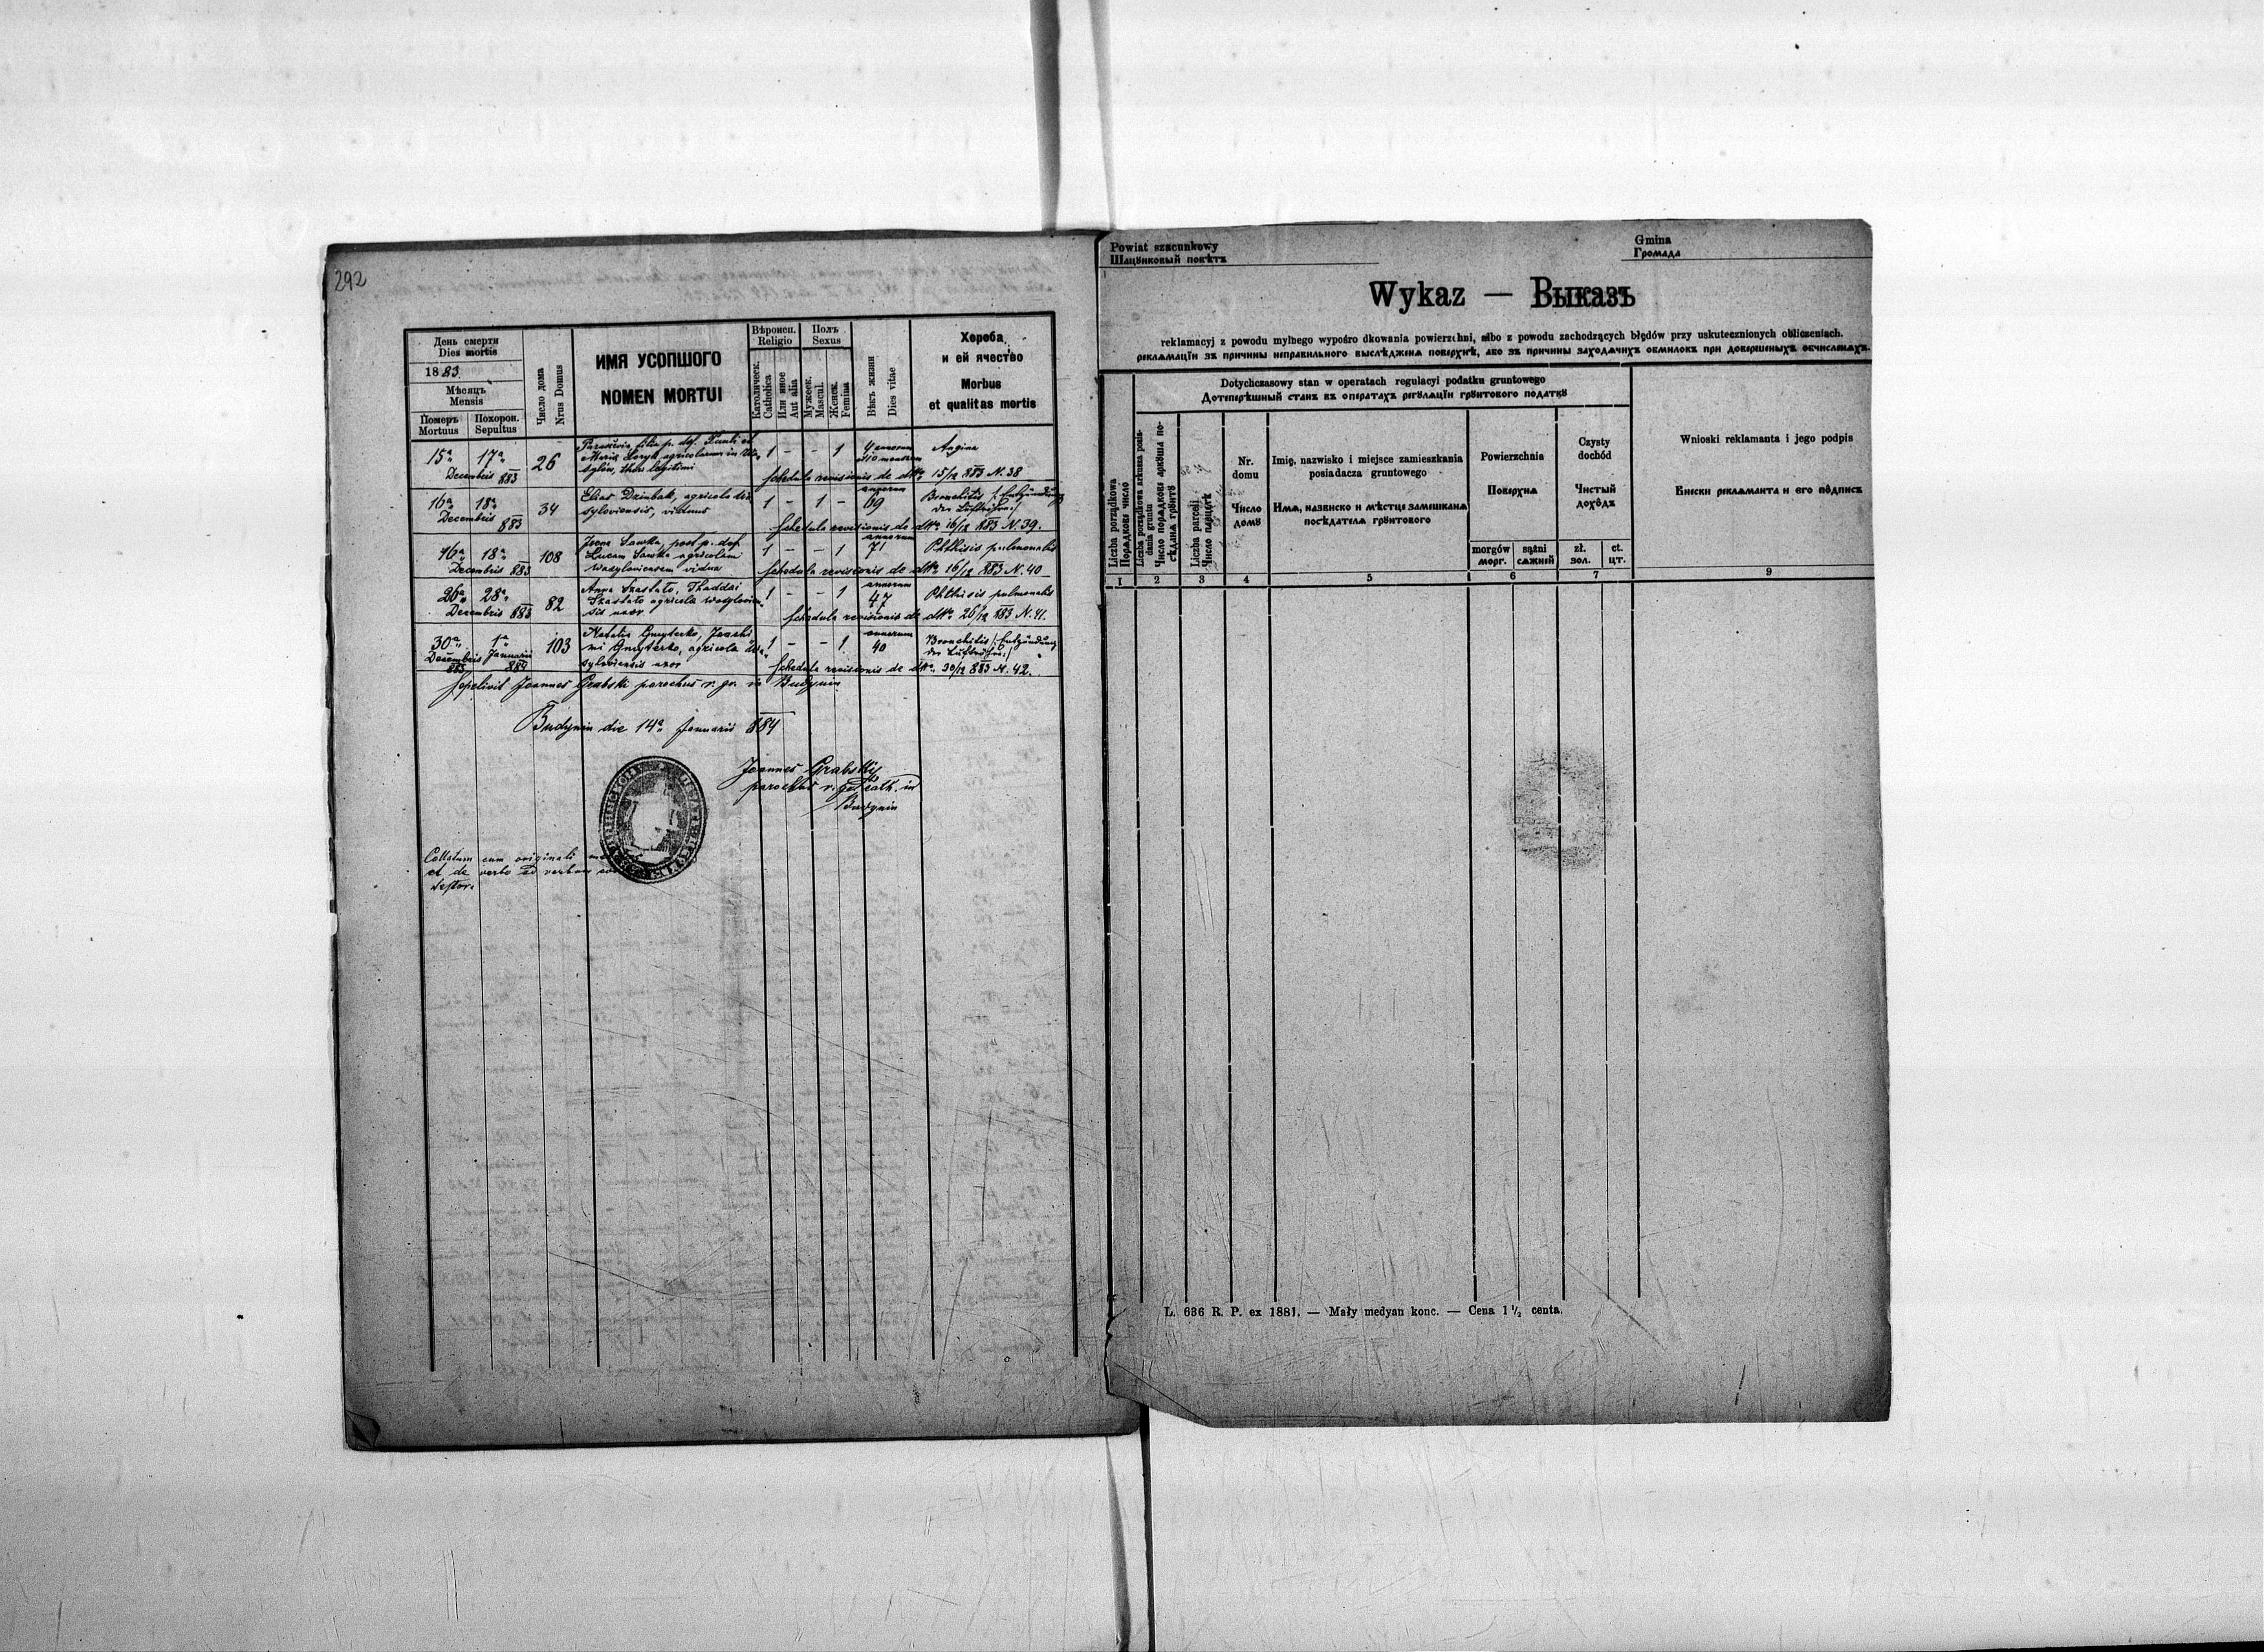 292
День смерти
Dies mortis
1883
Мѣсяцъ
Mensis
Померъ
Mortuus
Похорон.
Sepultus
Число дома
Nrus Domus
ИМЯ УСОПШОГО
NOMEN MORTUI
Вѣроисп.
Religio
Католическ.
Catholica
Или иное
Aut alia
Полъ
Sexus
Мужеск.
Mascul.
Женск.
Femina
Вѣкъ жизни
Dies vitae
Хороба
и ей ячество
Morbus
et qualitas mortis
15a 17a
Decembris 883
26
filia p. def. Pauli et
Maria agricolarum in
thori legitimi
1 - - 1
4 annorum
Angina
Schedula revisionis de dtto 15/12 883 N. 38
16a 18a
Decembris 883
34
Elias Dziubak, agricola
syloviensis, viduus
1 - 1 -
annorum
69
Bronchitis /: Entzündung
der Luftröhre :/
Schedula revisionis de dtto 16/12 883 N. 39.
16a 18a
Decembris 883
108
Sawka, post p. def.
Lucam Sawka agricolam
Wasyloviensem vidua
1 - - 1
annorum
71
Phthisis pulmonalis
Schedula revisionis de dtto 16/12 883 N. 40
26a 28a
Decembris 883
82
Anna Szastało, Thaddai
Szastało agricola Wasylovien-
sis uxor
1 - - 1
annorum
47
Phthisis pulmonalis
Schedula revisionis de dtto 26/12 883 N. 41.
30a 1a
Decembris Januarii
883 884
103
Natalia Gmyterko,
Gmyterko, agricola
syloviensis uxor
1 - - 1
annorum
40
Bronchitis /: Entzündung
der Luftröhre :/
Schedula revisionis de dtto 30/12 883 N. 42.
Sepelivit Joannes Grabski parochus r. gr. in Budynin
Budynin die 14a Januarii 884
Joannes Grabski
parochus r. gr. cath. in
Budynin
Collatum cum originali
et de verbo ad verbum
Powiat szacunkowy
Шацꙋнковый повѣтъ
Gmina
Громада
Wykaz — Выказъ
reklamacyj z powodu mylnego wypośro dkowania powierzchni, albo z powodu zachodzących błędów przy uskutecznionych obliczeniach.
рекламаціи зъ причины неправильного выслѣдженя поверхнѣ, або зъ причины заходячихъ обмилокъ при довершеныхъ обчисленяхъ.
Liczba porządkowa
Порядкове число
Liczba porządkowa arkusza posia-
dania gruntu
Число порядкове аркꙋша по-
сѣданя грꙋнтꙋ
Liczba parceli
Число парцелѣ
Dotychczasowy stan w operatach regulacyi podatku gruntowego
Дотеперѣшный станъ въ оператахъ регꙋляціи грꙋнтового податкꙋ
Nr.
domu
Число
домꙋ
Imię, nazwisko i miejsce zamieszkania
posiadacza gruntowego
Имя, назвиско и мѣстце замешканя
посѣдателя грꙋнтового
Powierzchnia
Поверхня
morgów
морг.
sążni
сяжней
Czysty
dochód
Чистый
доходъ
zł.
зол.
ct.
цт.
Wnioski reklamanta i jego podpis
Внески рекламанта и его подпись
1 2 3 4 5 6 7 9
L. 636 R. P. ex 1881. — Mały medyan konc. — Cena 1 1/2 centa.